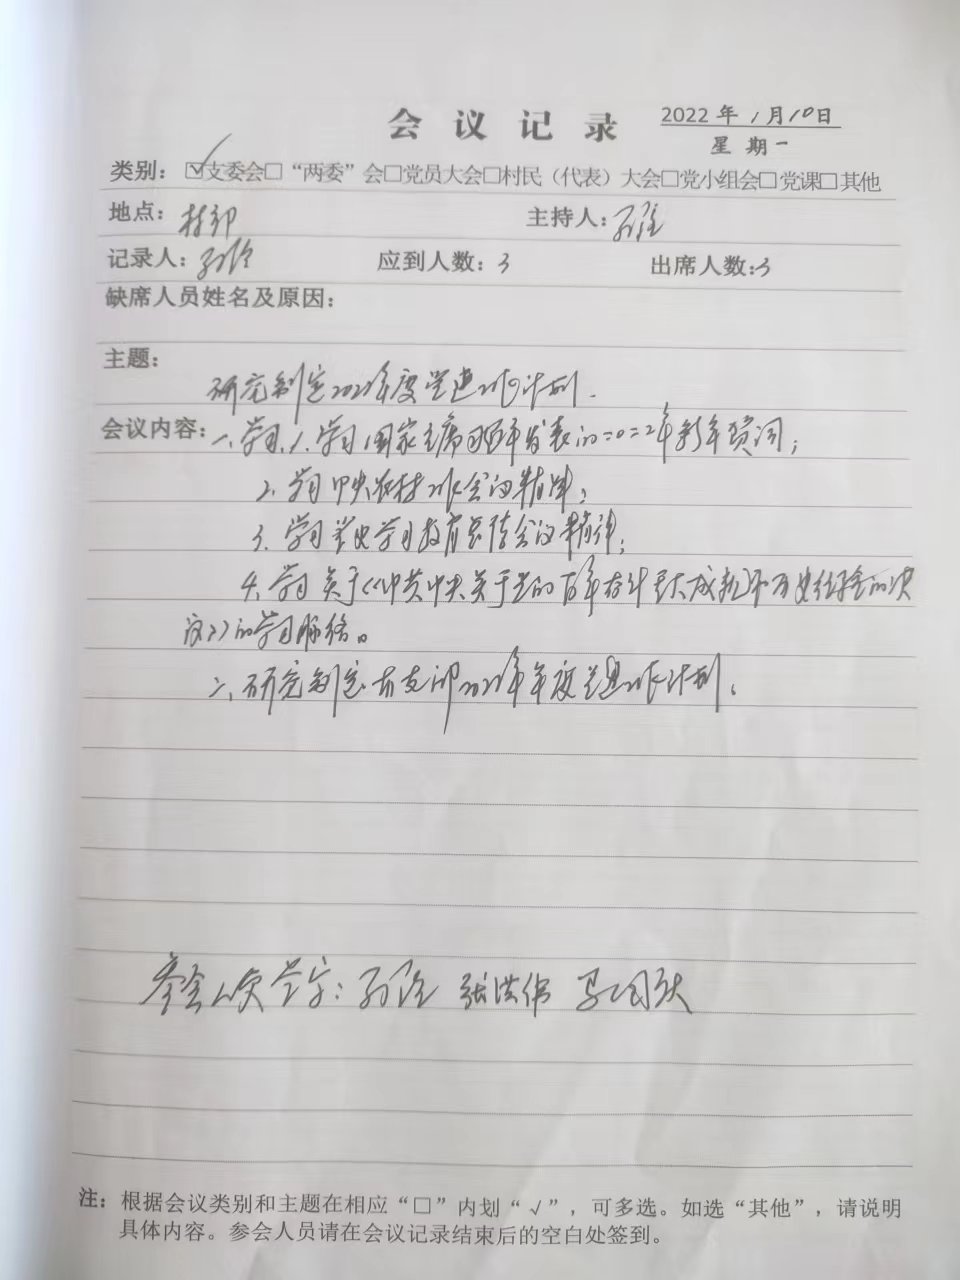 会议记录
2022年1月10日
星期一
类别：☑支委会□“两委”会□党员大会□村民（代表）大会□党小组会□党课□其他
地点：村部
主持人：
记录人：
应到人数：3
出席人数：3
缺席人员姓名及原因：
主题：
研究制定2022年度党建工作计划.
会议内容：一、学习.1.学习国家主席习近平发表的二〇二2年新年贺词；
2.学习中央农村工作会议精神；
3.学习党史学习教育总结会议精神；
4.学习关于《中共中央关于党的百年奋斗重大成就和历史经验的决
议》的学习脉络。
二、研究制定本支部2022年年度党建工作计划。
参会人员签字：张洪伟
注：根据会议类别和主题在相应“□”内划“√”，可多选。如选“其他”，请说明
具体内容。参会人员请在会议记录结束后的空白处签到。